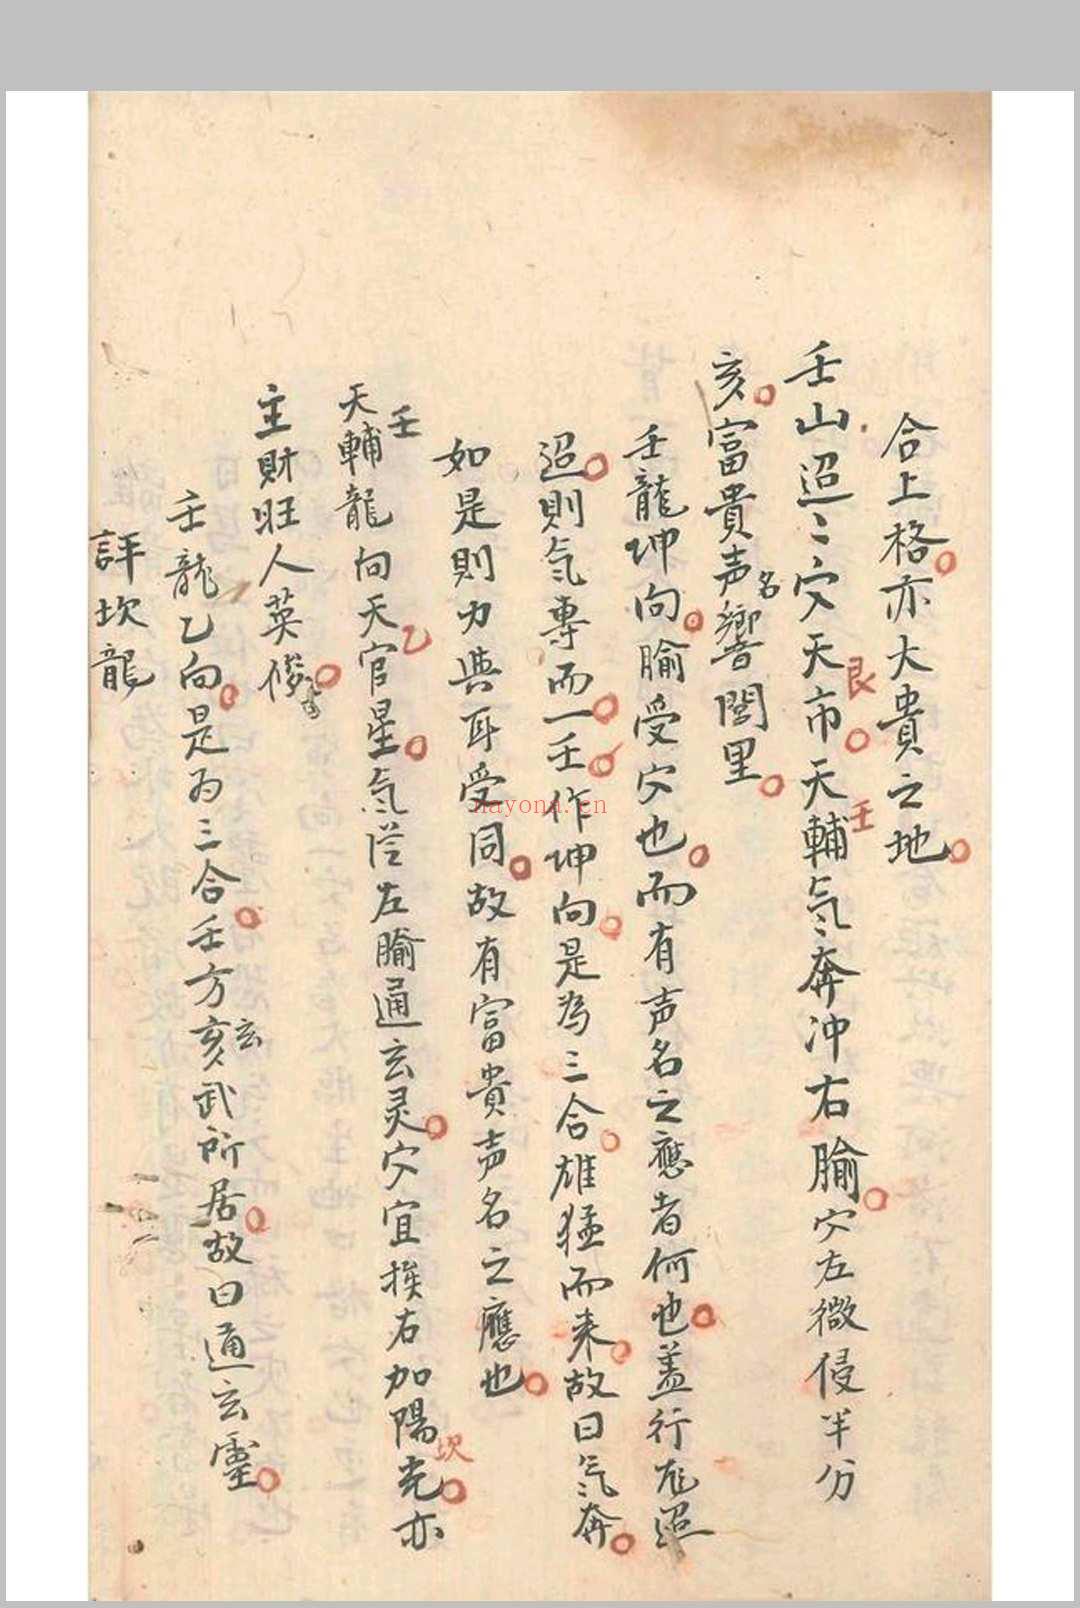 合上格亦大貴之地
壬山迢〻穴天市天輔氣奔冲右腧穴左微侵半分
艮
壬
亥富貴声響閭里
名
壬龍坤向腧受穴也而有声名之應者何也盖行龙迢
迢則氣專而一壬作坤向是為三合雄猛而来故曰氣奔
如是則力與耳受同故有富貴声名之應也
天輔龍向天官星氣從左腧通玄灵穴宜挨右加陽光亦
壬
乙
坎
主財旺人英俊
壬龍乙向是为三合壬方亥武所居故曰通玄靈
玄
評坎龍
nayona.cn